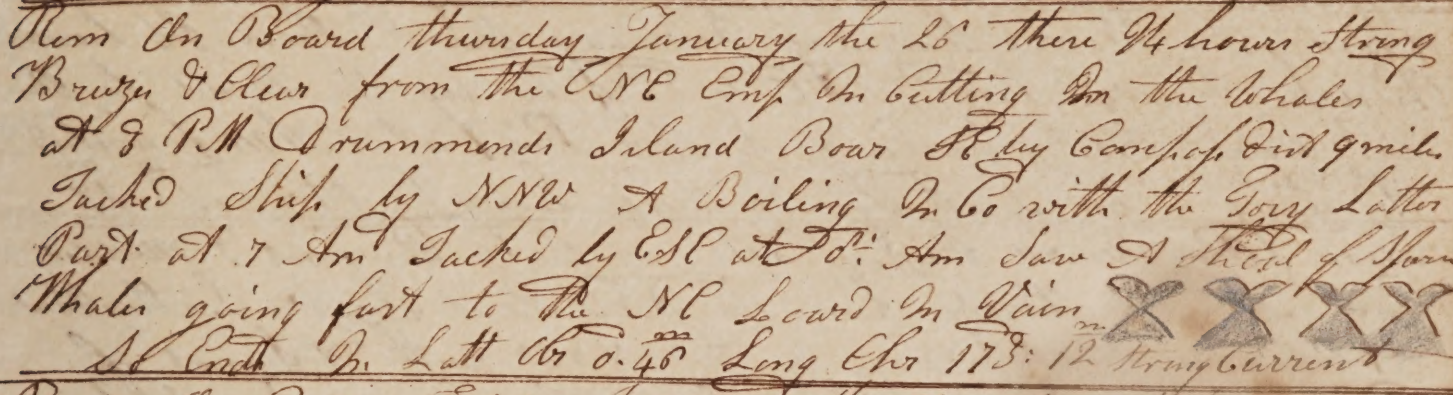 Rem On Board thursday January the 26 these 24 hours Strong
Breezes & Clear from the NE Emp In Cutting In the Whales
at 3 PM Drummonds Island Boar SE by Compass dist 9 miles
Tacked Ship by NNW A Boiling In Co with the Tory Latter
Part at 7 Am Tacked by ESE at Am Saw A Sheal of Sparm
Whales going fast to the NE Loard In Vain
So Ends In Latt Obr 0. 46 m Long Chr 173: 12 m Strong Current